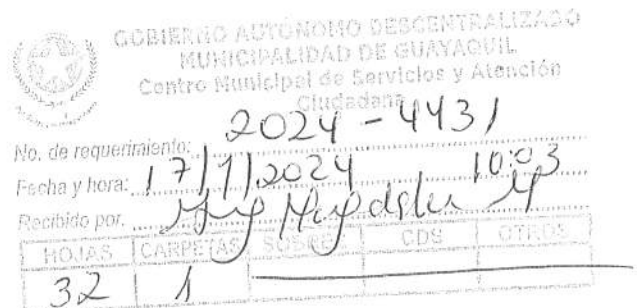 GOBIERNO AUTÓNOMO DESCENTRALIZADO
MUNICIPALIDAD DE GUAYAQUIL
Centro Municipal de Servicios y Atención
Ciudadana
No. de requerimiento: 2024-4431
Fecha y hora: 17/1/2024 10:03
Recibido por.
HOJAS CARPETAS SOBRES CDS OTROS
32 1